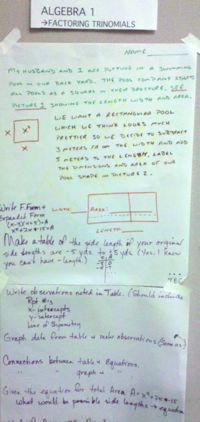 ALGEBRA 1
→FACTORING TRINOMIALS
NAME
MY HUSBAND AND I ARE PUTTING IN A SWIMMING
POOL IN OUR BACK YARD. THE POOL COMPANY STARTS
ALL POOLS AS A SQUARE IN THEIR BROCHURE. SEE
PICTURE 1 SHOWING THE LENGTH WIDTH AND AREA.
WE WANT A RECTANGULAR POOL
WHICH WE THINK LOOKS MUCH
PRETTIER SO WE DECIDE TO SUBTRACT
3 METERS FROM THE WIDTH AND ADD
5 METERS TO THE LENGTH. LABEL
THE DIMENSIONS AND AREA OF OUR
POOL SHAPE IN PICTURE 2.
X
X²
X
Write F. Form &
Expanded Form
(x-3)(x+5)=A
x²+2x-15=A
WIDTH
AREA:
LENGTH
Make a table of the side length of your original
side lengths are -5 yds to 5 yds (Yes, I know
you can't have - length.)
ETC
Write observations noted in Table. (Should include
x-intercepts
y-intercept
Line of Symmetry
Graph data from table & make observations (Same as)
Connections between table & equations.
" graph & "
Given the equation for total Area A=x²+2x-15
what would be possible side lengths & equation